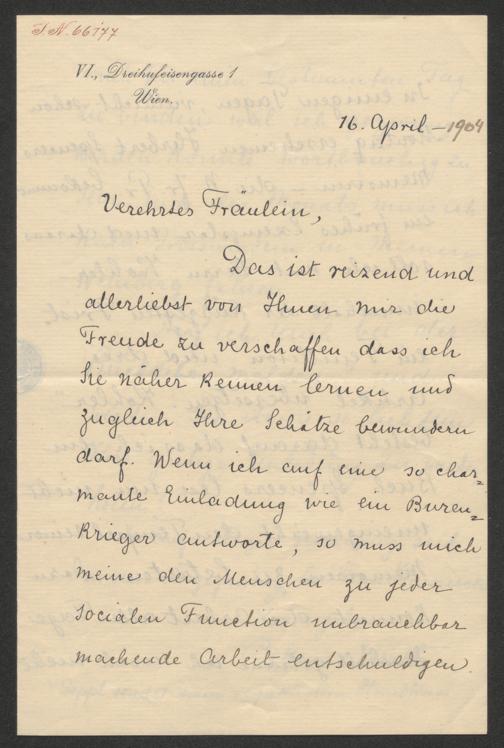 I.N. 66177
VI., Dreihufeisengasse 1
Wien.
16. April – 1904
Verehrtes Fräulein,
Das ist reizend und
allerliebst von Ihnen mir die
Freude zu verschaffen, dass ich
Sie näher kennen lernen und
zugleich Ihre Schätze bewundern
darf. Wenn ich auf eine so char-
mante Einladung wie ein Buren-
krieger antworte, so muss mich
meine den Menschen zu jeder
socialen Function unbrauchbar
machende Arbeit entschuldigen.